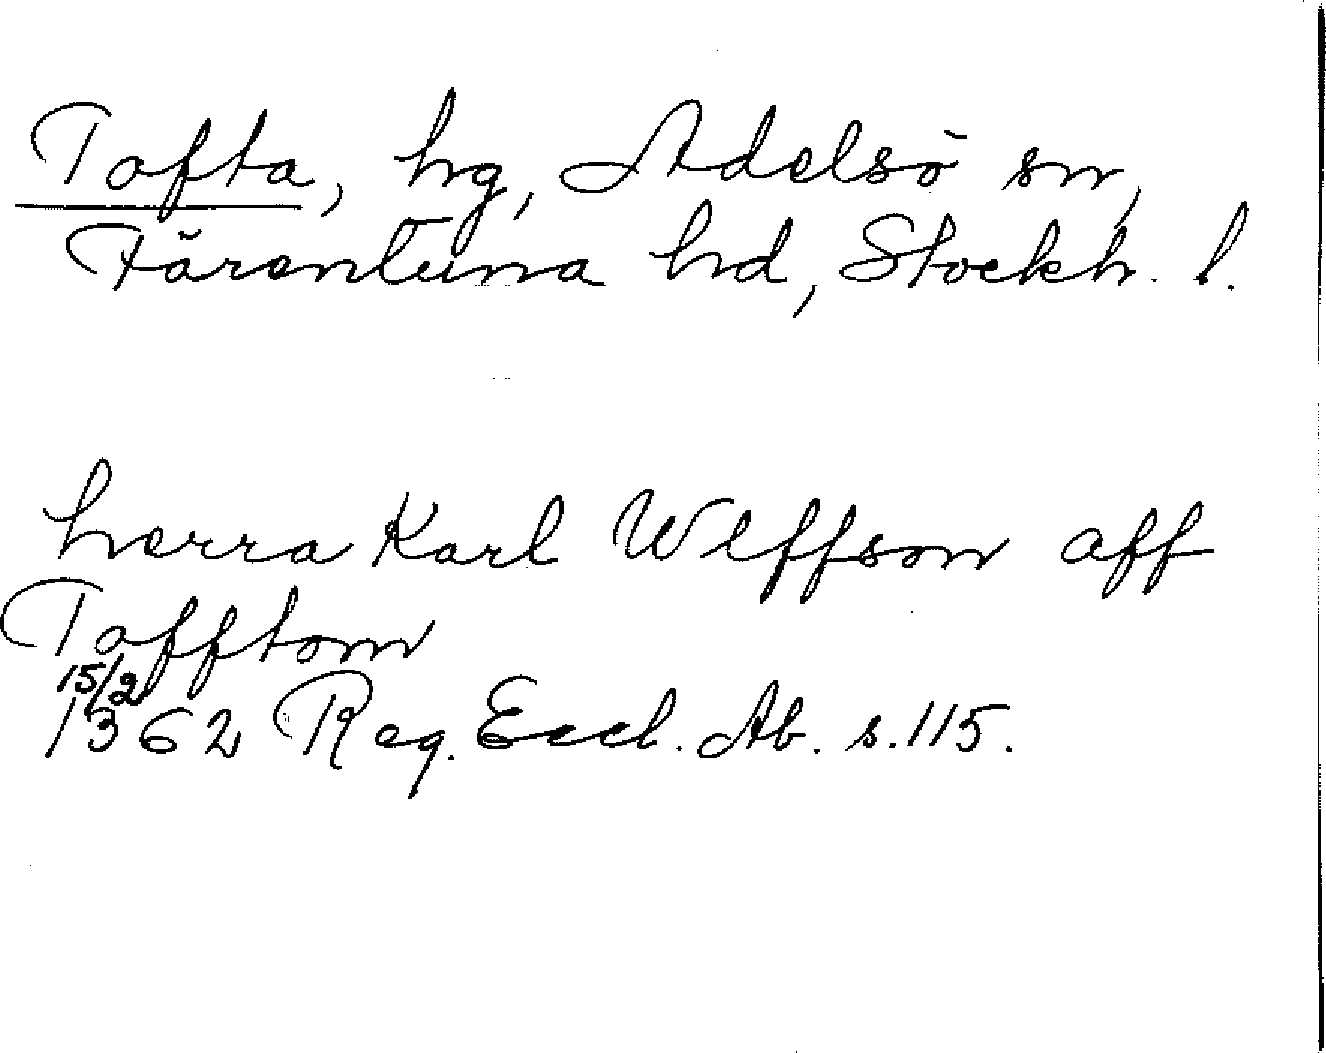 Tofta, hg, Adelsö sn,
Färentuna hd, Stockh. l.
herra Karl Wlffson aff
Tofftom
15/2
1362 Reg. Eccl. Ab. s. 115.